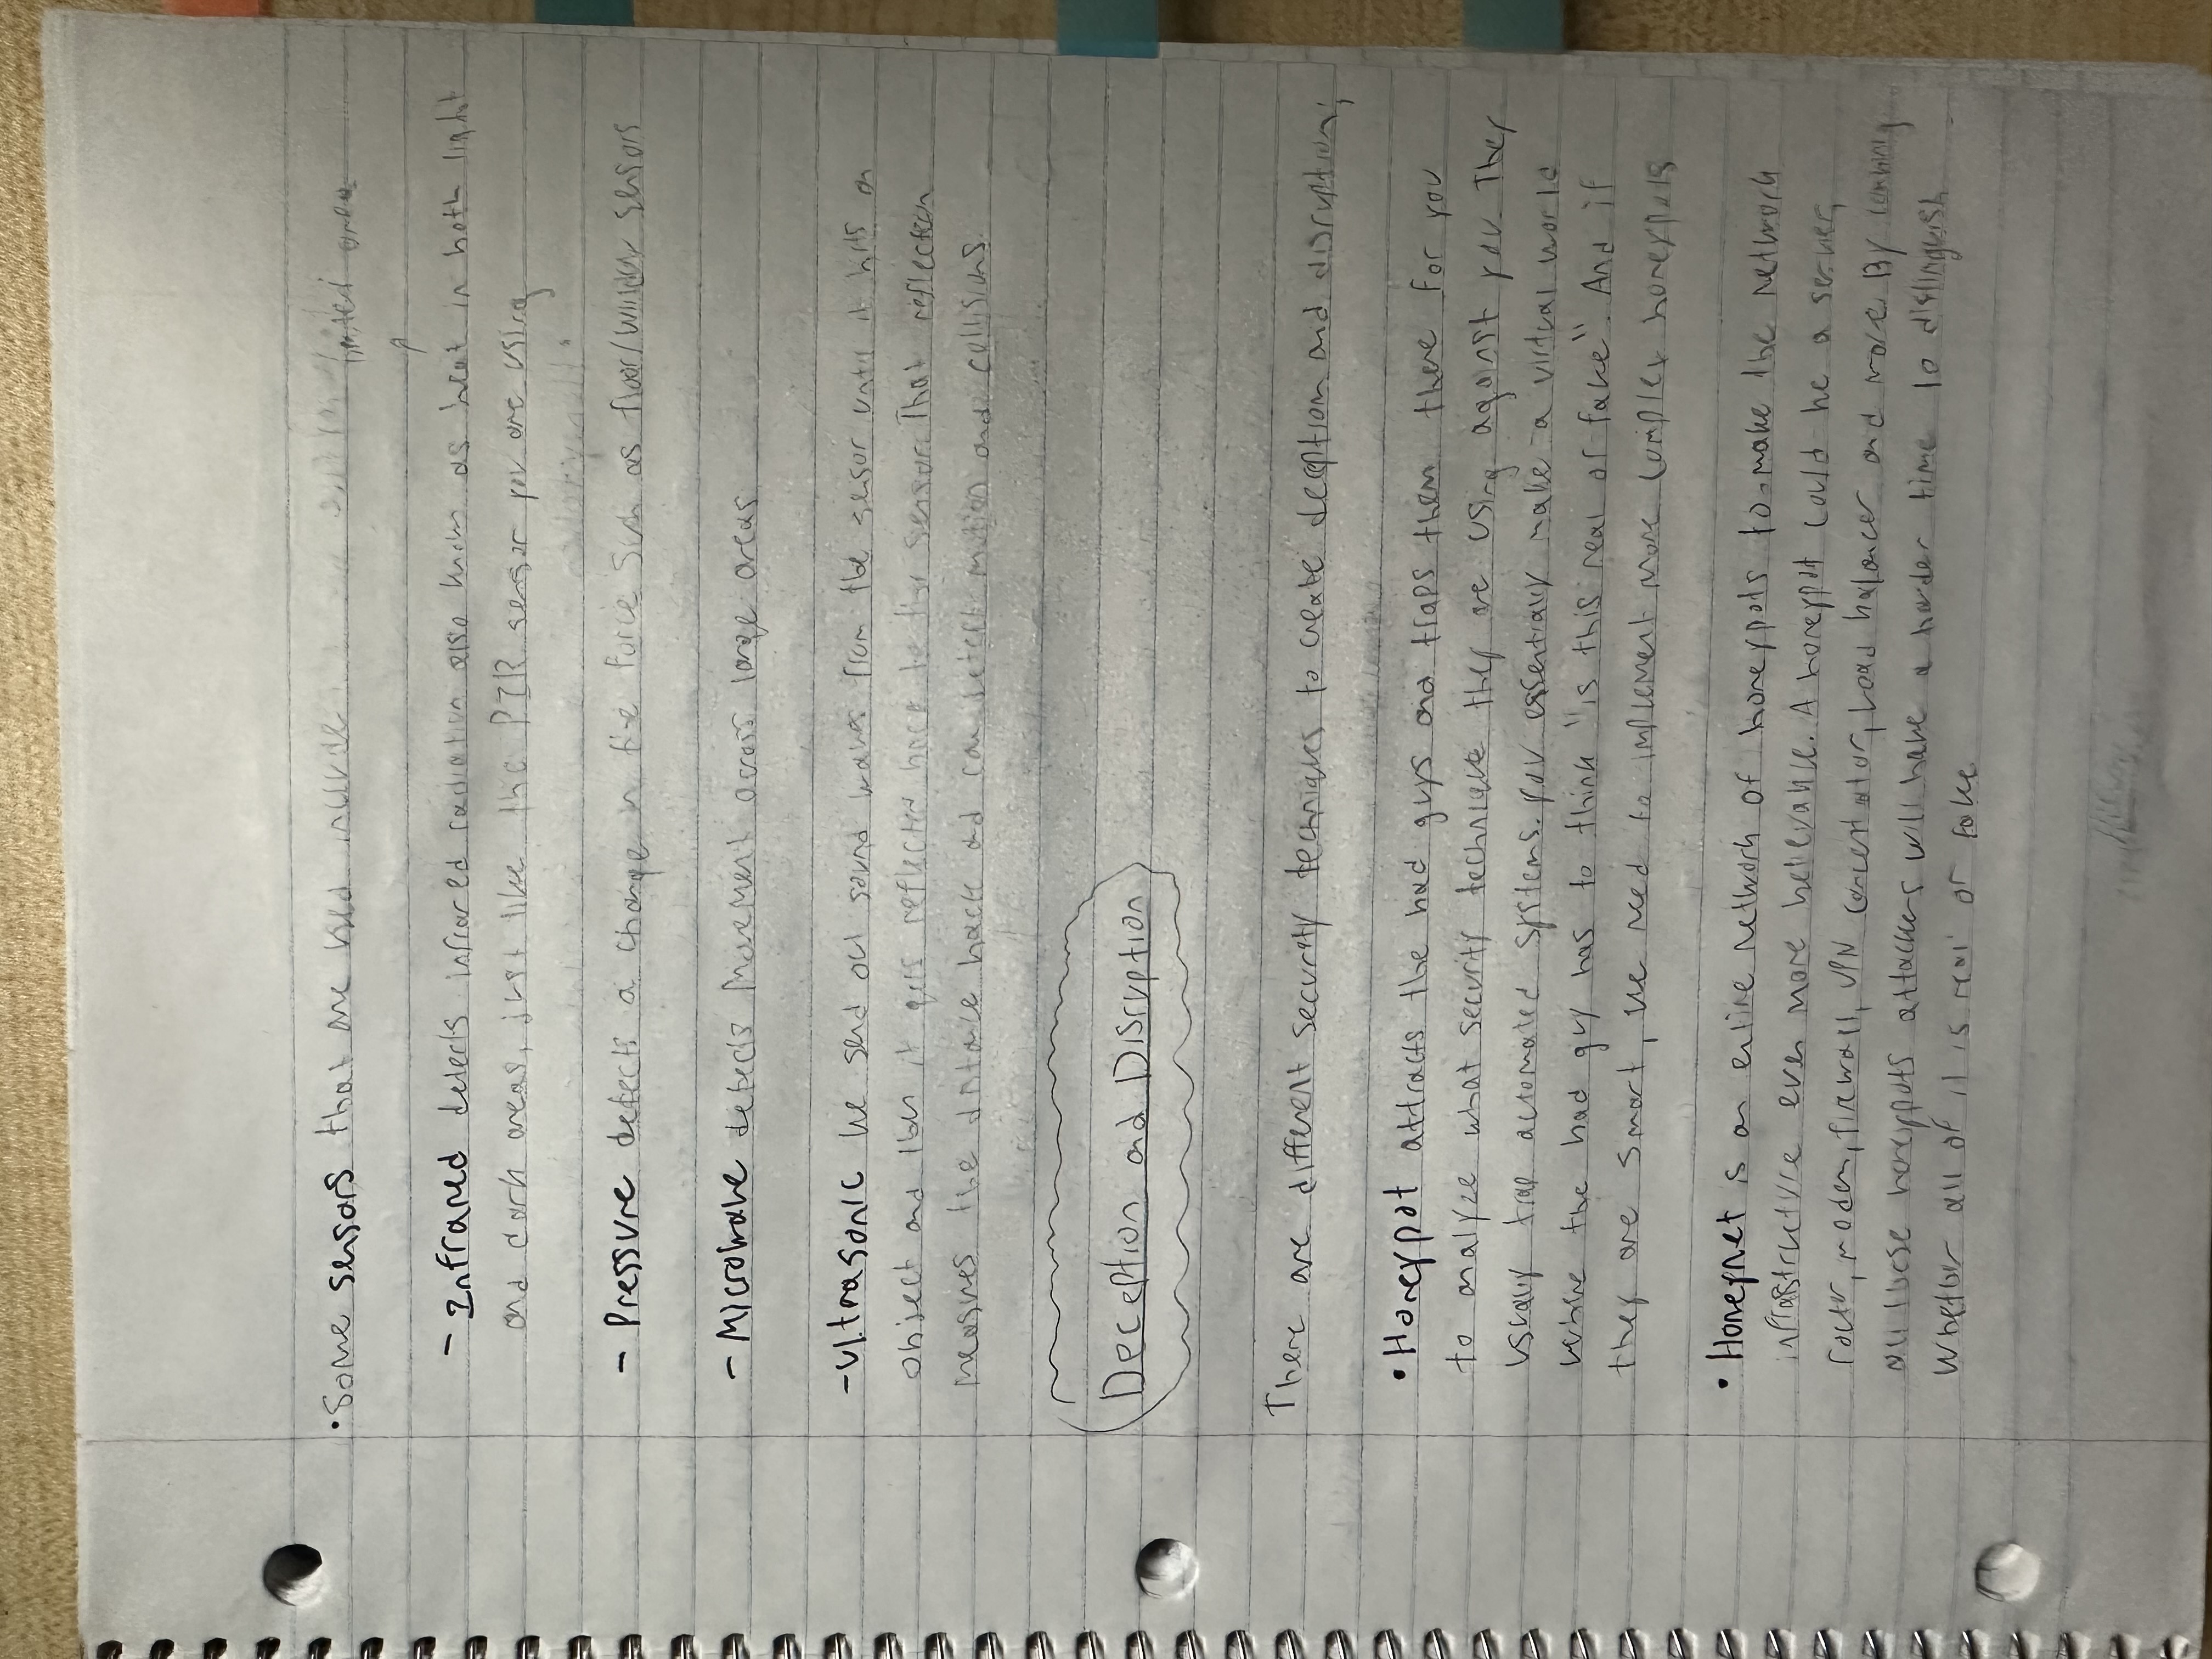 •Some sensors that are used include
limited area
- Infrared detects infrared radiation also known as heat in both light
and dark areas, just like the PIR sensor you are using
- Pressure detects a change in the force such as floor/window sensors
- Microwave detects movement across large areas
-Ultrasonic we send out sound waves from the sensor until it hits an
object and then it gets reflected back to the sensor. That reflection
measures the distance back and can detect motion and collisions.
Deception and Disruption
There are different security techniques to create deception and disruption;
•Honeypot attracts the bad guys and traps them there for you
to analyze what security technique they are using against you. They
usually trap automated systems. You essentially make a virtual world
where the bad guy has to think "is this real or fake". And if
they are smart, we need to implement more complex honeypots
• Honeynet is an entire network of honeypots to make the network
infrastructure even more believable. A honeypot could be a server,
router, modem, firewall, VPN concentrator, Load balancer and more. By combining
all these honeypots attackers will have a harder time to distinguish
whether all of it is real or fake